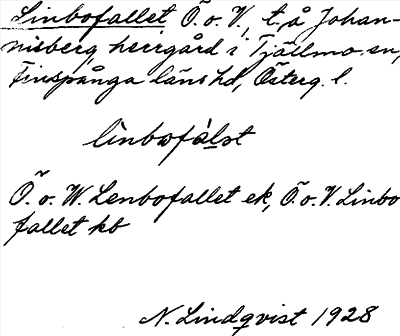 Linbofallet Ö. o. V., t. å Johan-
nisberg, herrgård i Tjällmo sn,
Finspånga läns hd, Österg. l.
lìnbωfál̵st
Ö. o. W. Lenbofallet ek, Ö. o. V. Linbo
fallet kb
N. Lindqvist 1928